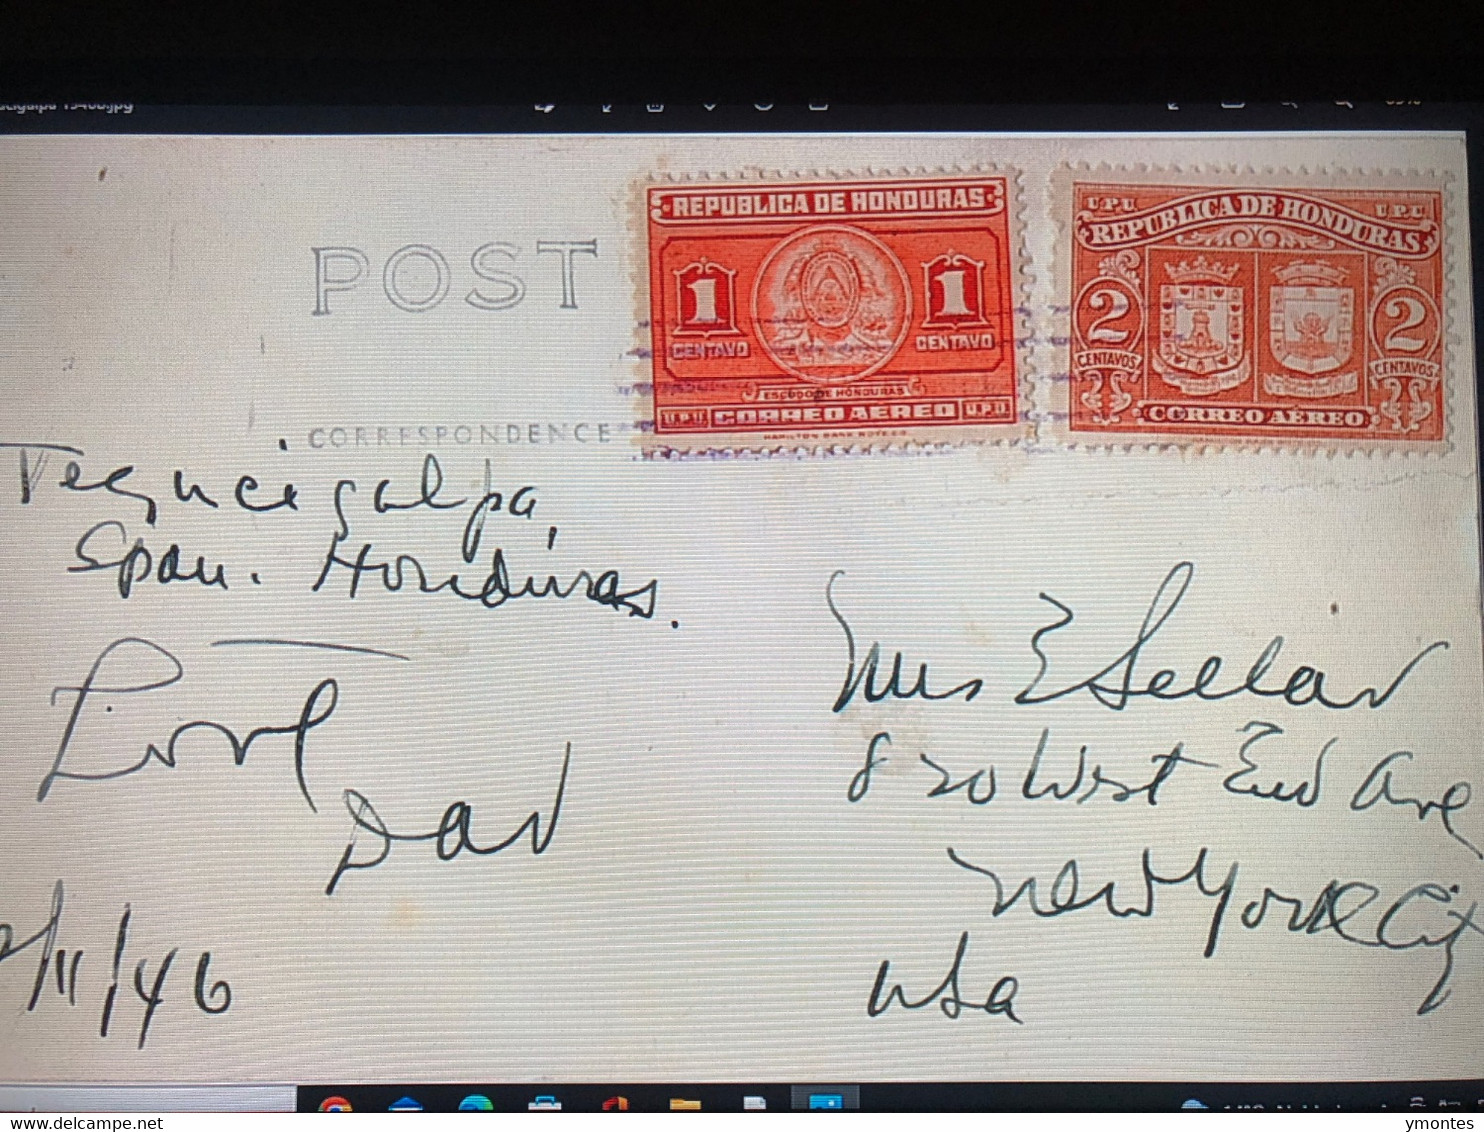 POST
CORRESPONDENCE
REPUBLICA DE HONDURAS
1 1
CENTAVO CENTAVO
ESCUDO DE HONDURAS
U.P.U CORREO AEREO U.P.U
HAMILTON BANK NOTE CO
U.P.U U.P.U
REPUBLICA DE HONDURAS
2 2
CENTAVOS CENTAVOS
CORREO AÉREO
Tegucigalpa,
Span. Honduras.
Love
Dav
/11/46
Mrs E Sellar
820 West End Ave
New York City
USA
www.delcampe.net
ymontes